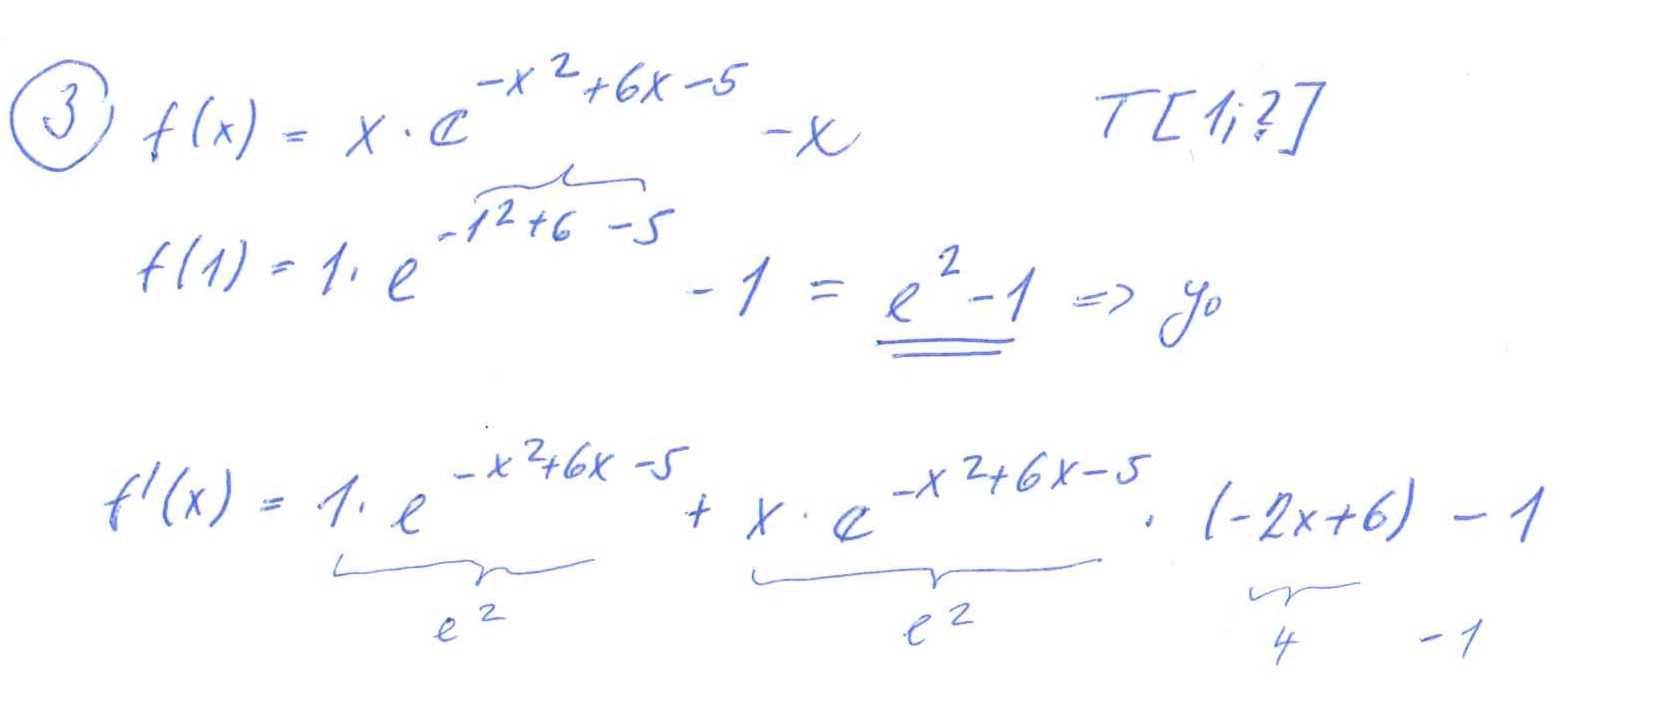 ③ f(x) = x · e^{-x^2+6x-5} - x T[1;?]
f(1) = 1 · e^{-1^2+6-5} - 1 = e^2 - 1 => y_0
f'(x) = 1 · e^{-x^2+6x-5} + x · e^{-x^2+6x-5} · (-2x+6) - 1
e^2 e^2 4 -1